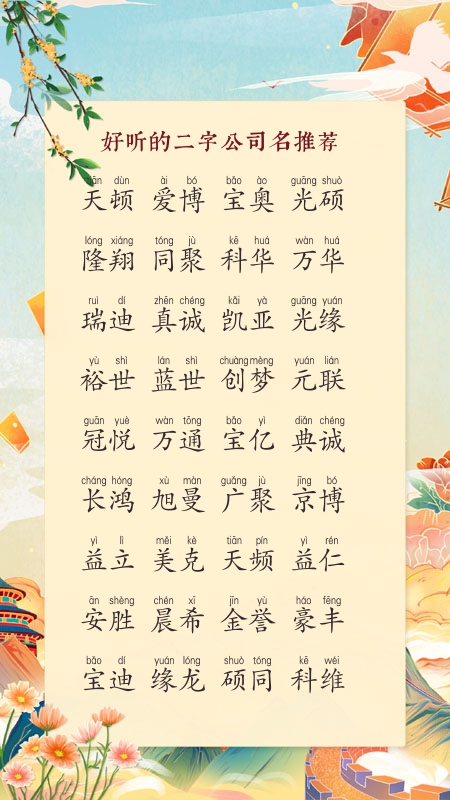 好听的二字公司名推荐
tiān dùn ài bó bǎo ào guāng shuò
天顿 爱博 宝奥 光硕
lóng xiáng tóng jù kē huá wàn huá
隆翔 同聚 科华 万华
ruì dí zhēn chéng kǎi yà guāng yuán
瑞迪 真诚 凯亚 光缘
yù shì lán shì chuàng mèng yuán lián
裕世 蓝世 创梦 元联
guān yuè wàn tōng bǎo yì diǎn chéng
冠悦 万通 宝亿 典诚
cháng hóng xù màn guǎng jù jīng bó
长鸿 旭曼 广聚 京博
yì lì měi kè tiān pín yì rén
益立 美克 天频 益仁
ān shèng chén xī jīn yù háo fēng
安胜 晨希 金誉 豪丰
bǎo dí yuán lóng shuò tóng kē wéi
宝迪 缘龙 硕同 科维